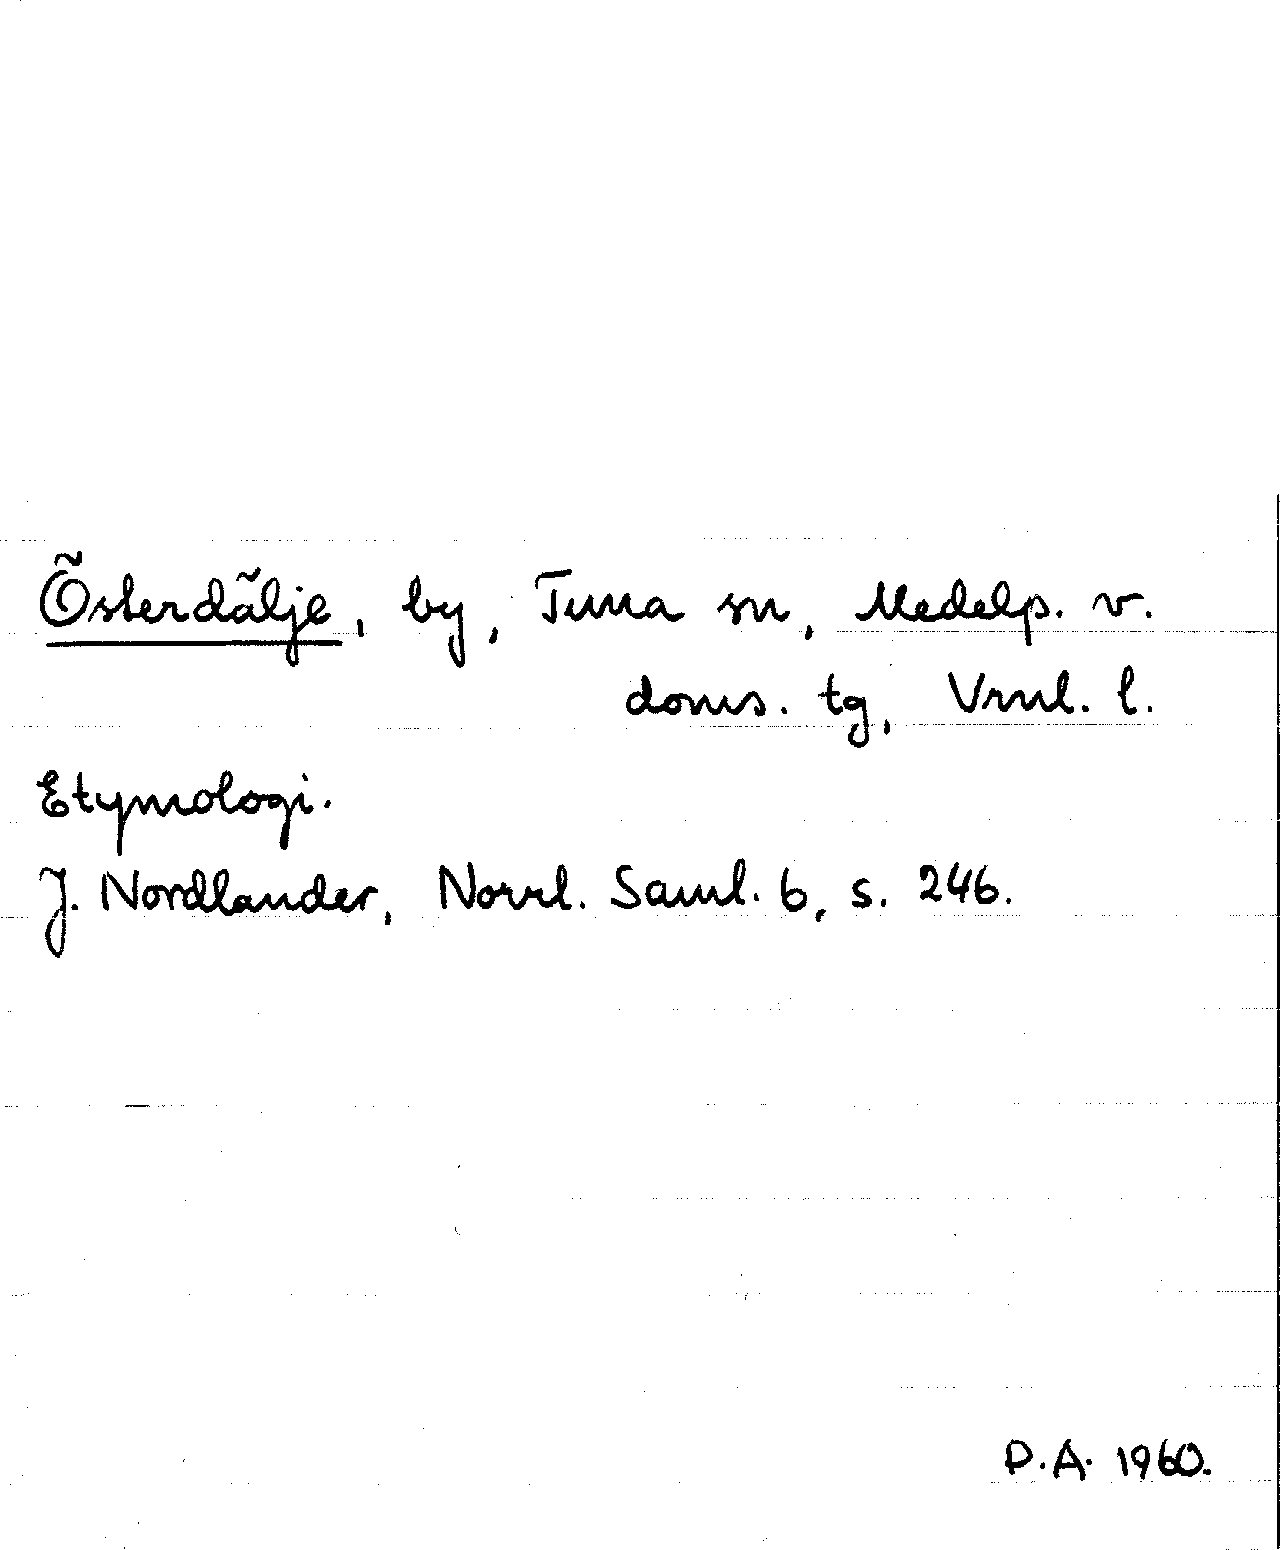 Österdälje, by, Tuna sn, Medelp. v.
doms. tg, Vrnl. l.
Etymologi.
J. Nordlander, Norrl. Saml. 6, s. 246.
P.A. 1960.